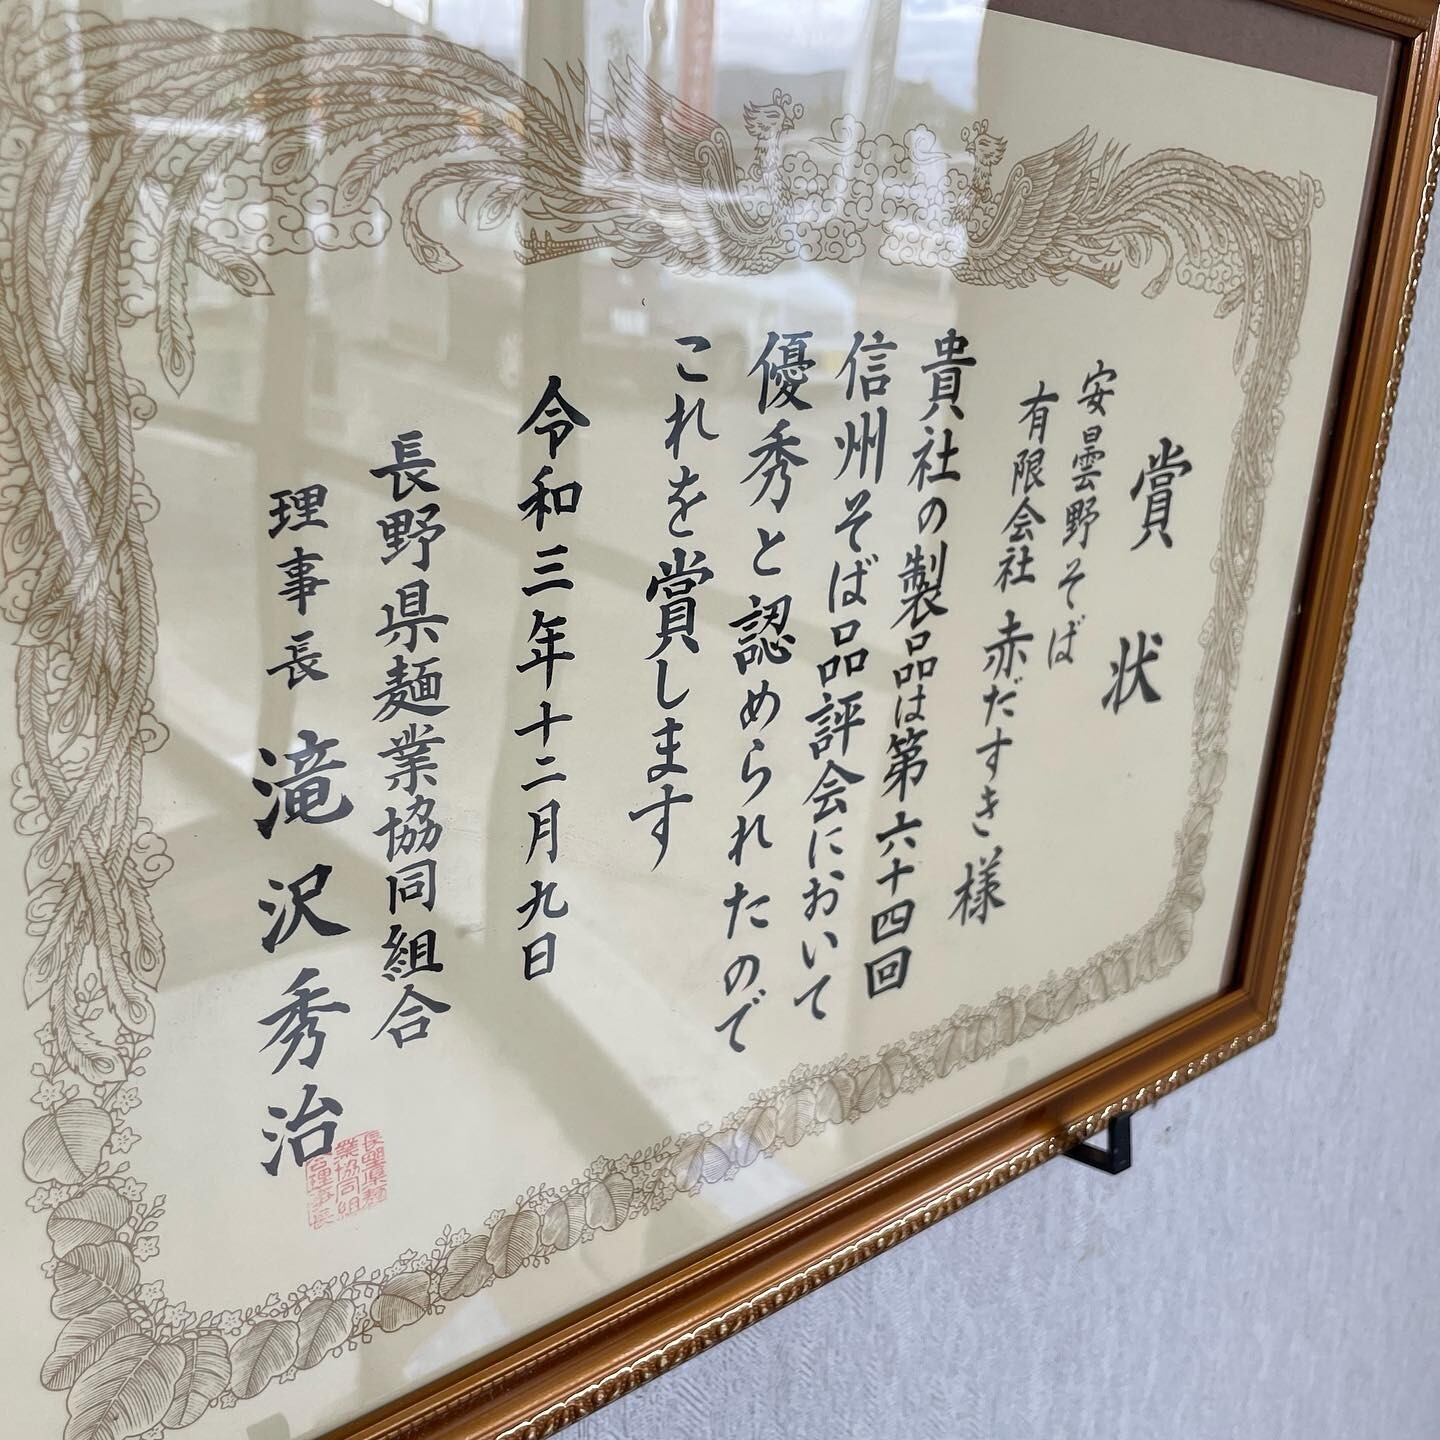 賞状
安曇野そば
有限会社 赤だすき様
貴社の製品は第六十四回
信州そば品評会において
優秀と認められたので
これを賞します
令和三年十二月九日
長野県麺業協同組合
理事長 滝沢秀治
長野県麺
業協同組
合理事長